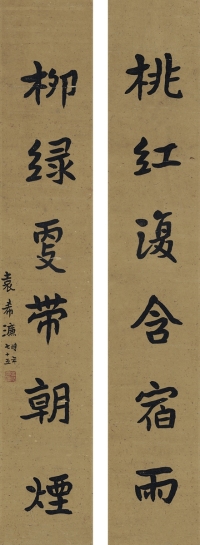 桃红復含宿雨
柳绿更带朝煙
袁希濂 時年七十五